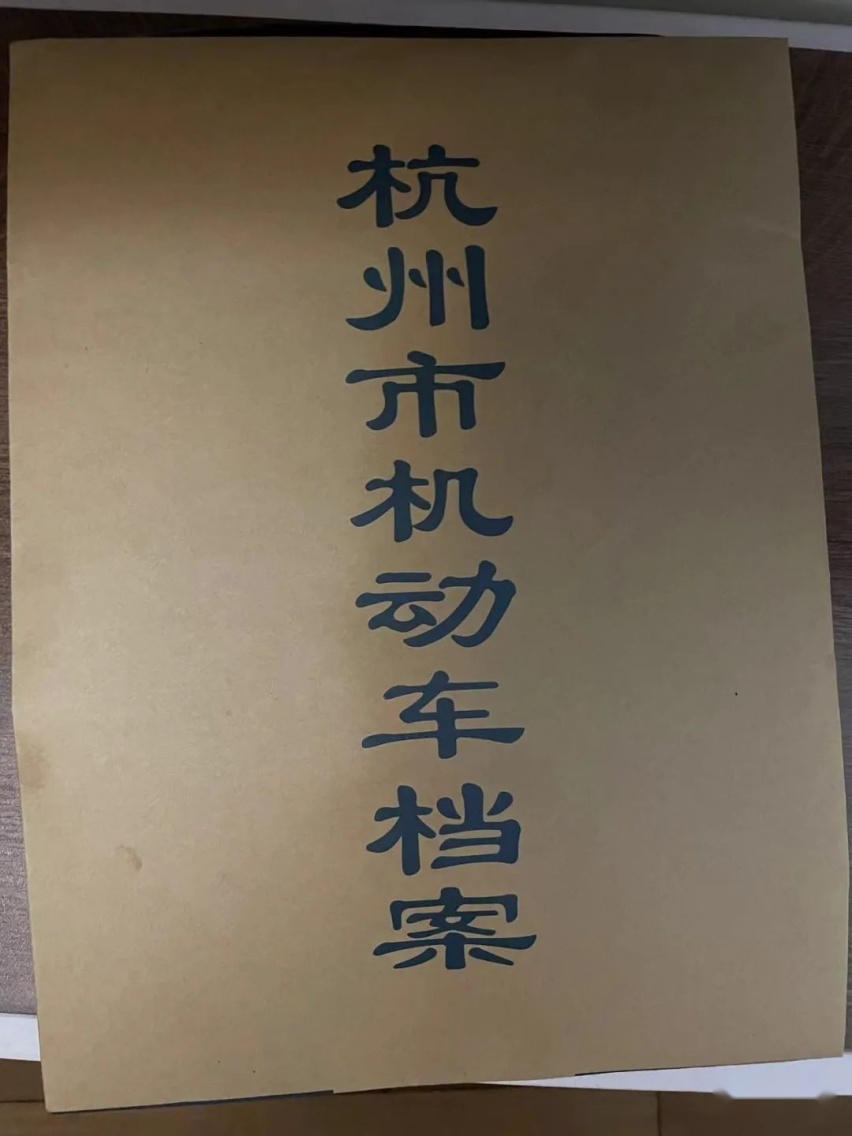 杭州市机动车档案